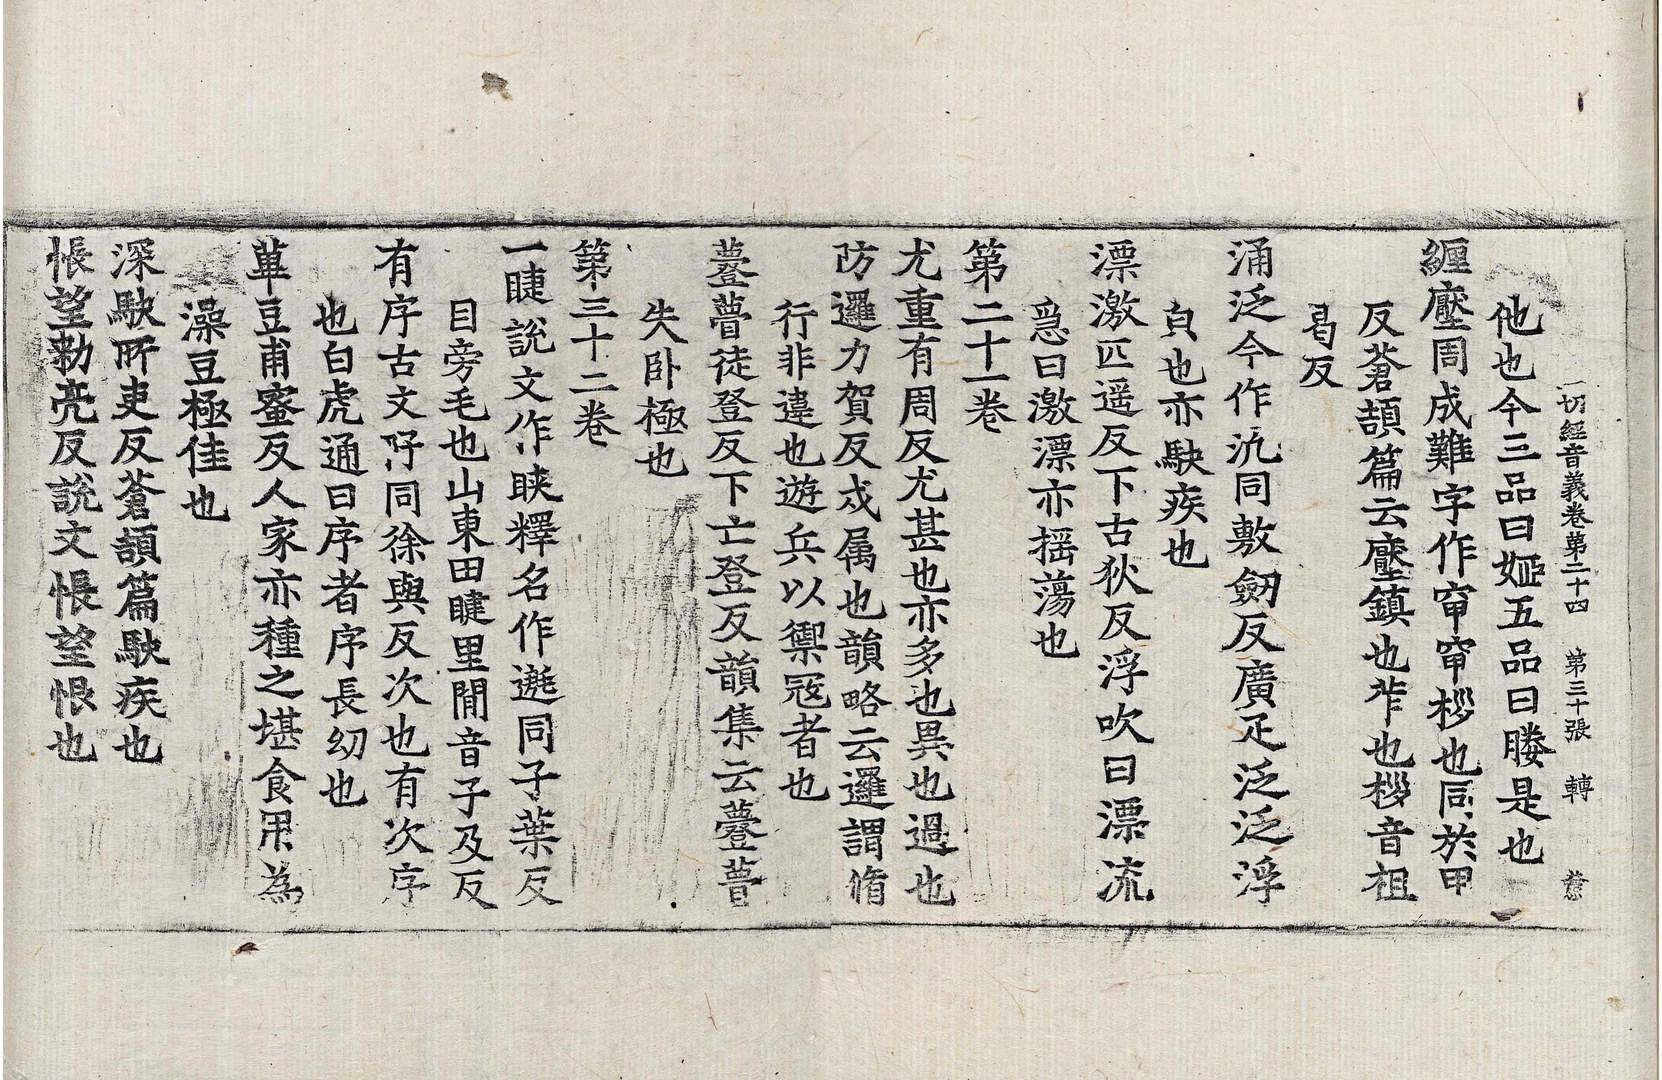 一切經音義卷第二十四　第三十張　轉
他也今三品曰婭五品曰媵是也
纏壓周成難字作窄窄桚也同於甲
反蒼頡篇云壓鎮也笮也桚音祖
曷反
涌泛今作汎同敷劒反廣疋泛泛浮
皃也亦駃疾也
漂激匹遥反下古狄反浮吹曰漂流
急曰激漂亦摇蕩也
第二十一卷
尤重有周反尤甚也亦多也異也過也
防邏力賀反戍属也韻略云邏謂脩
行非違也遊兵以禦寇者也
薹瞢徒登反下亡登反韻集云薹瞢
失卧極也
第三十二卷
一睫說文作䀹釋名作𨗸同子葉反
目旁毛也山東田睫里閒音子及反
有序古文㐨同徐與反次也有次序
也白虎通曰序者序長幼也
萆豆甫蜜反人家亦種之堪食用為
澡豆極佳也
深駃所吏反蒼頡篇駃疾也
悵望勑亮反說文悵望恨也